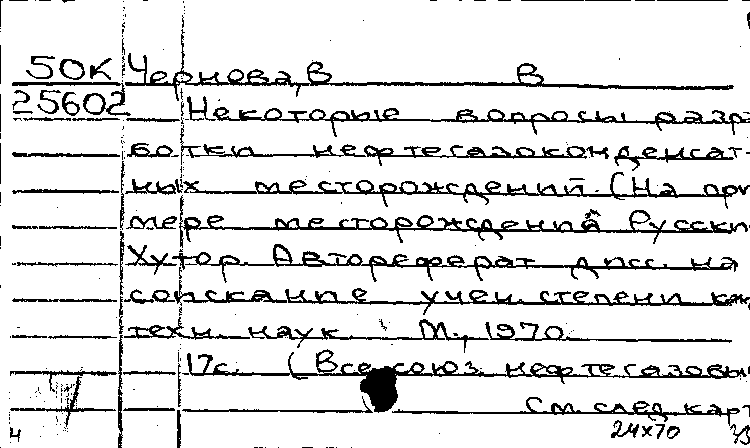 50К Чернова, В В
25602 Некоторые вопросы разра
ботки нефтегазоконденсат-
ных месторождений. (На при
мере месторождений Русски
Хутор. Автореферат дисс. на
соискание учен. степени канд
техн. наук. М., 1970.
17с. (Всесоюз. нефтегазовы
См. след. карт
24х70